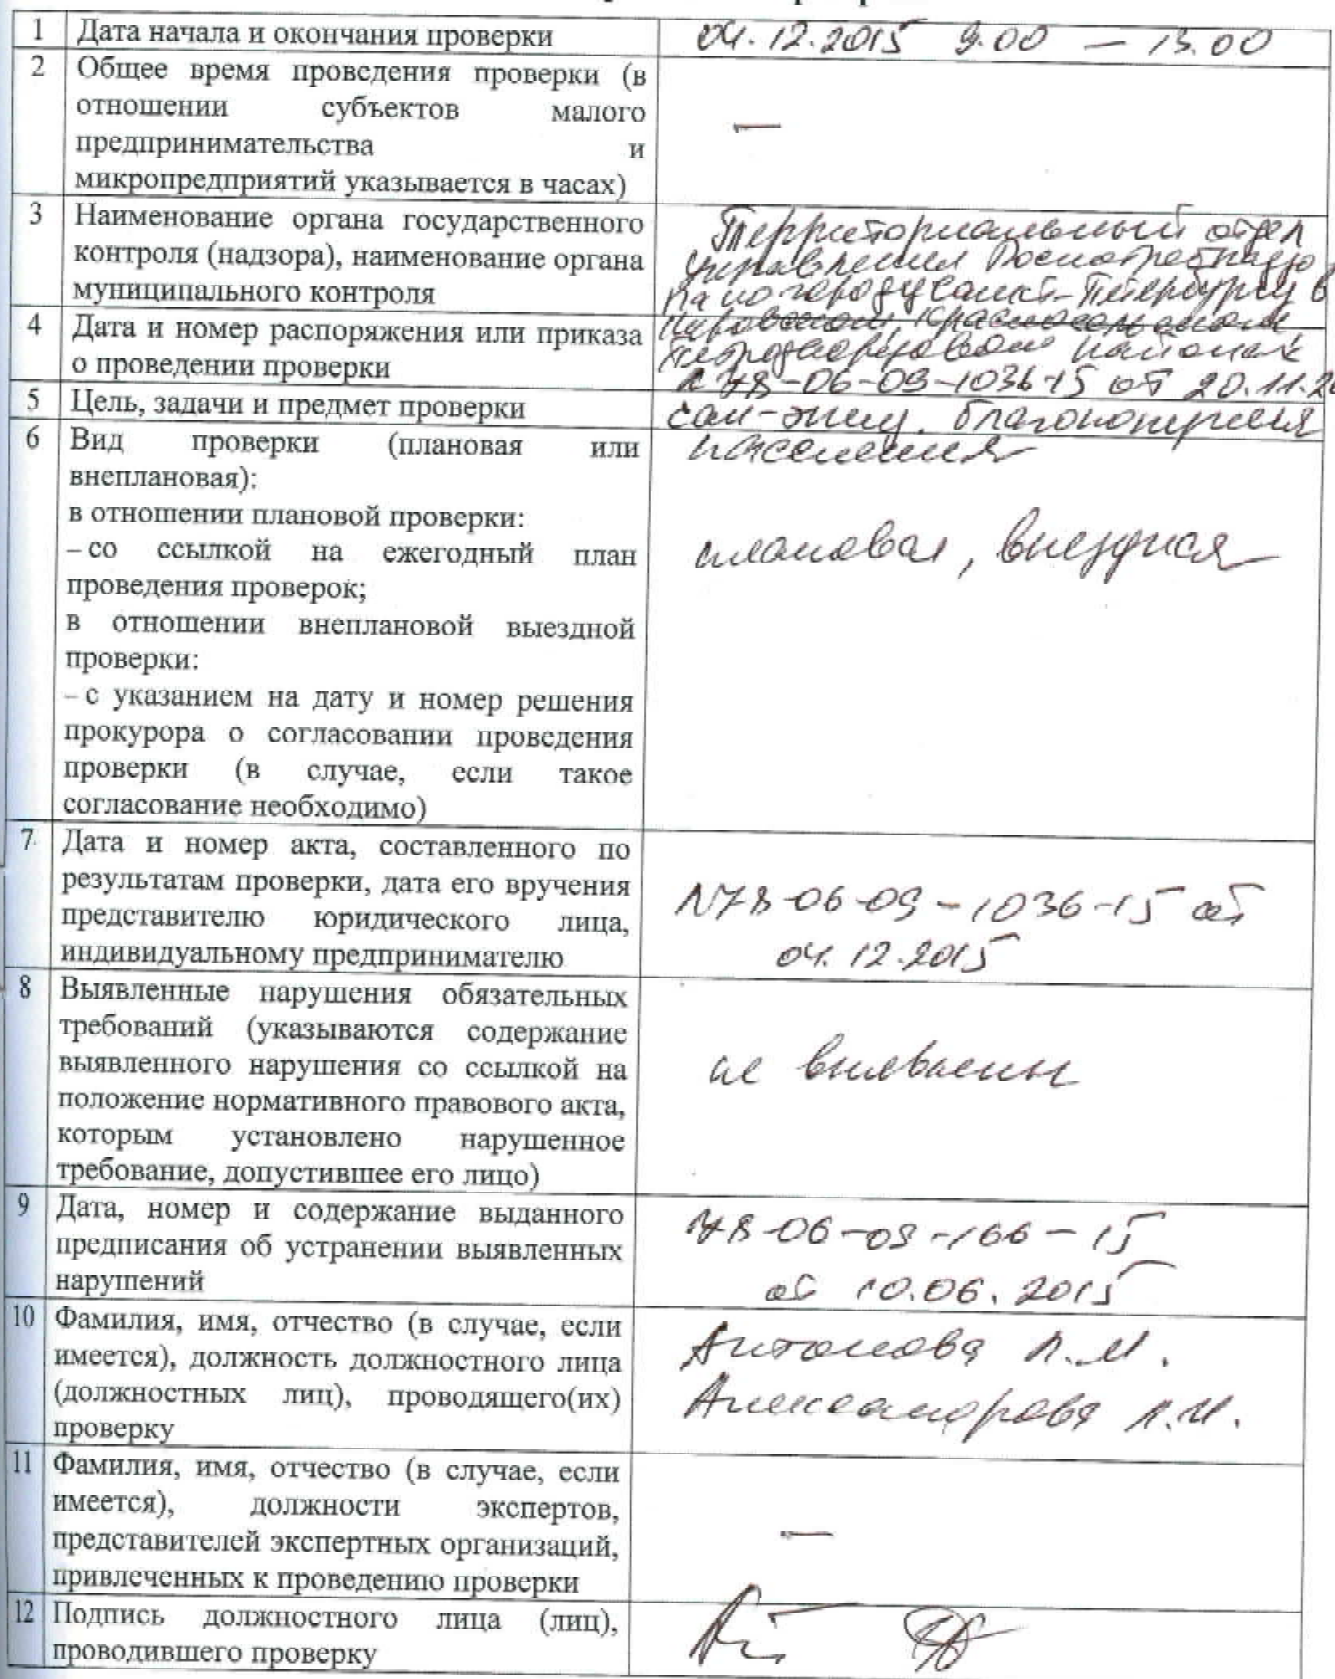 1 Дата начала и окончания проверки 04.12.2015 9.00 — 13.00
2 Общее время проведения проверки (в
отношении субъектов малого
предпринимательства и
микропредприятий указывается в часах)
—
3 Наименование органа государственного
контроля (надзора), наименование органа
муниципального контроля
Территориальный отдел
управления Роспотребнадзо
ра по городу Санкт-Петербургу в
Кировском, Красносельском,
Петродворцовом районах
4 Дата и номер распоряжения или приказа
о проведении проверки
N 78-06-09-1036-15 от 20.11.20
5 Цель, задачи и предмет проверки
сан-эпид. благополучия
населения
6 Вид проверки (плановая или
внеплановая):
в отношении плановой проверки:
– со ссылкой на ежегодный план
проведения проверок;
в отношении внеплановой выездной
проверки:
– с указанием на дату и номер решения
прокурора о согласовании проведения
проверки (в случае, если такое
согласование необходимо)
плановая, выездная
7 Дата и номер акта, составленного по
результатам проверки, дата его вручения
представителю юридического лица,
индивидуальному предпринимателю
N78-06-09-1036-15 от
04.12.2015
8 Выявленные нарушения обязательных
требований (указываются содержание
выявленного нарушения со ссылкой на
положение нормативного правового акта,
которым установлено нарушенное
требование, допустившее его лицо)
не выявлены
9 Дата, номер и содержание выданного
предписания об устранении выявленных
нарушений
78-06-09-166-15
от 10.06.2015
10 Фамилия, имя, отчество (в случае, если
имеется), должность должностного лица
(должностных лиц), проводящего(их)
проверку
Антонова Л.М.
Александрова Л.И.
11 Фамилия, имя, отчество (в случае, если
имеется), должности экспертов,
представителей экспертных организаций,
привлеченных к проведению проверки
—
12 Подпись должностного лица (лиц),
проводившего проверку